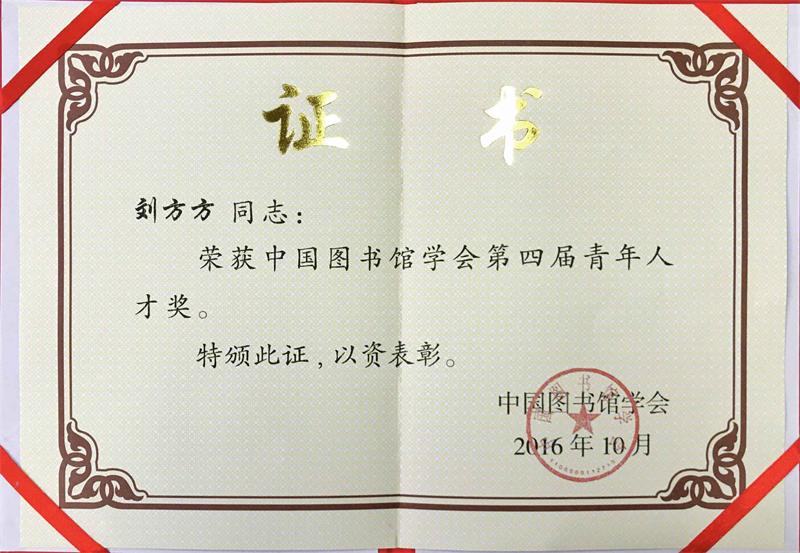 证 书
刘方方 同志：
荣获中国图书馆学会第四届青年人
才奖。
特颁此证，以资表彰。
中国图书馆学会
2016 年 10 月